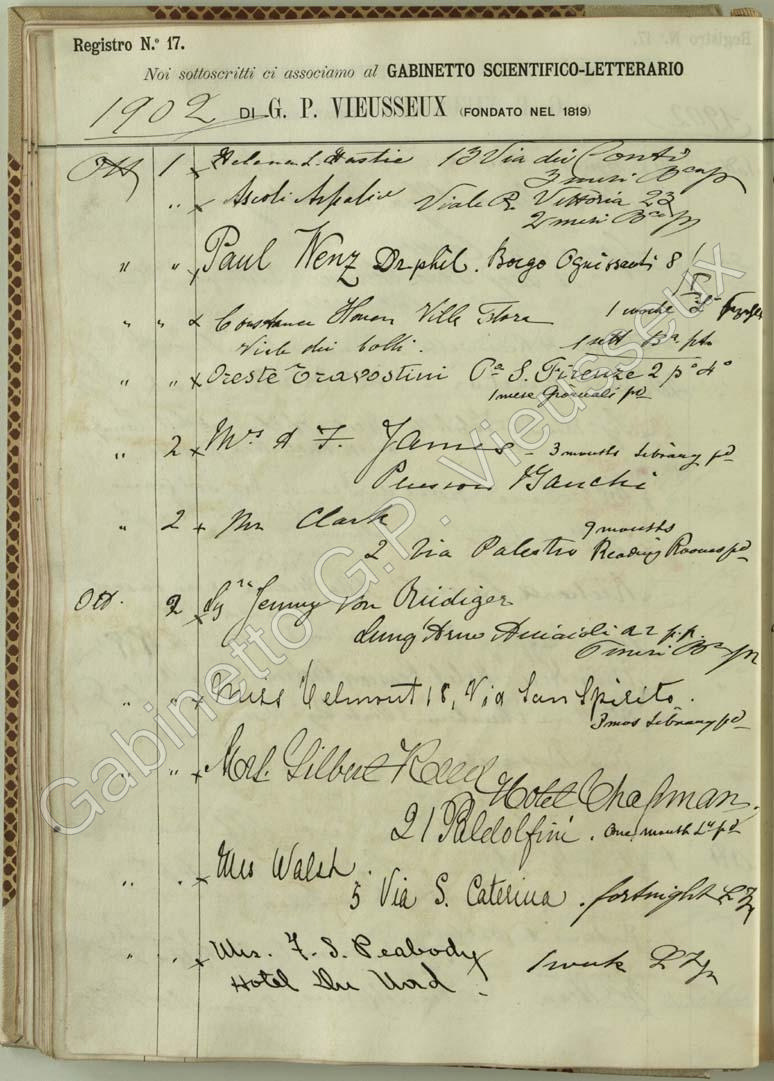 Registro N.º 17.
Noi sottoscritti ci associamo al GABINETTO SCIENTIFICO-LETTERARIO
1902 DI G. P. VIEUSSEUX (FONDATO NEL 1819)
Ott 1 x Helena L. Hastie 13 Via dei Conti
3 mesi
" x Ascoli Viale R. Vittoria 23
2 mesi
" " x Paul Wenz Dr phil. Borgo Ognissanti 8
" " x Constance Villa Flora 1
Viale dei Colli. 1 sett
" " x Oreste Travostini Pa S. Firenze 2 p° 4°
1 mese Giornali pd
" 2 x Mrs A F. James - 3 months Library pd
Pension Bianchi
" 2 x Mr Clark 9 months
2 Via Palestro Reading Rooms pd
Ott. 2 x Jenny von Rüdiger
Lung'Arno Acciaioli 22 p.p.
6 mesi
" " x Miss Velmont 18, Via San Spirito.
3 mos Library pd
" " x Mrs. Gilbert Hotel Chapman.
21 Pandolfini. One month Ly pd
" " x Mrs Walsh.
5 Via S. Caterina. fortnight
" " x Mrs. F. S. Peabody 1 week
Hotel du Nord.
Gabinetto G.P. Vieusseux